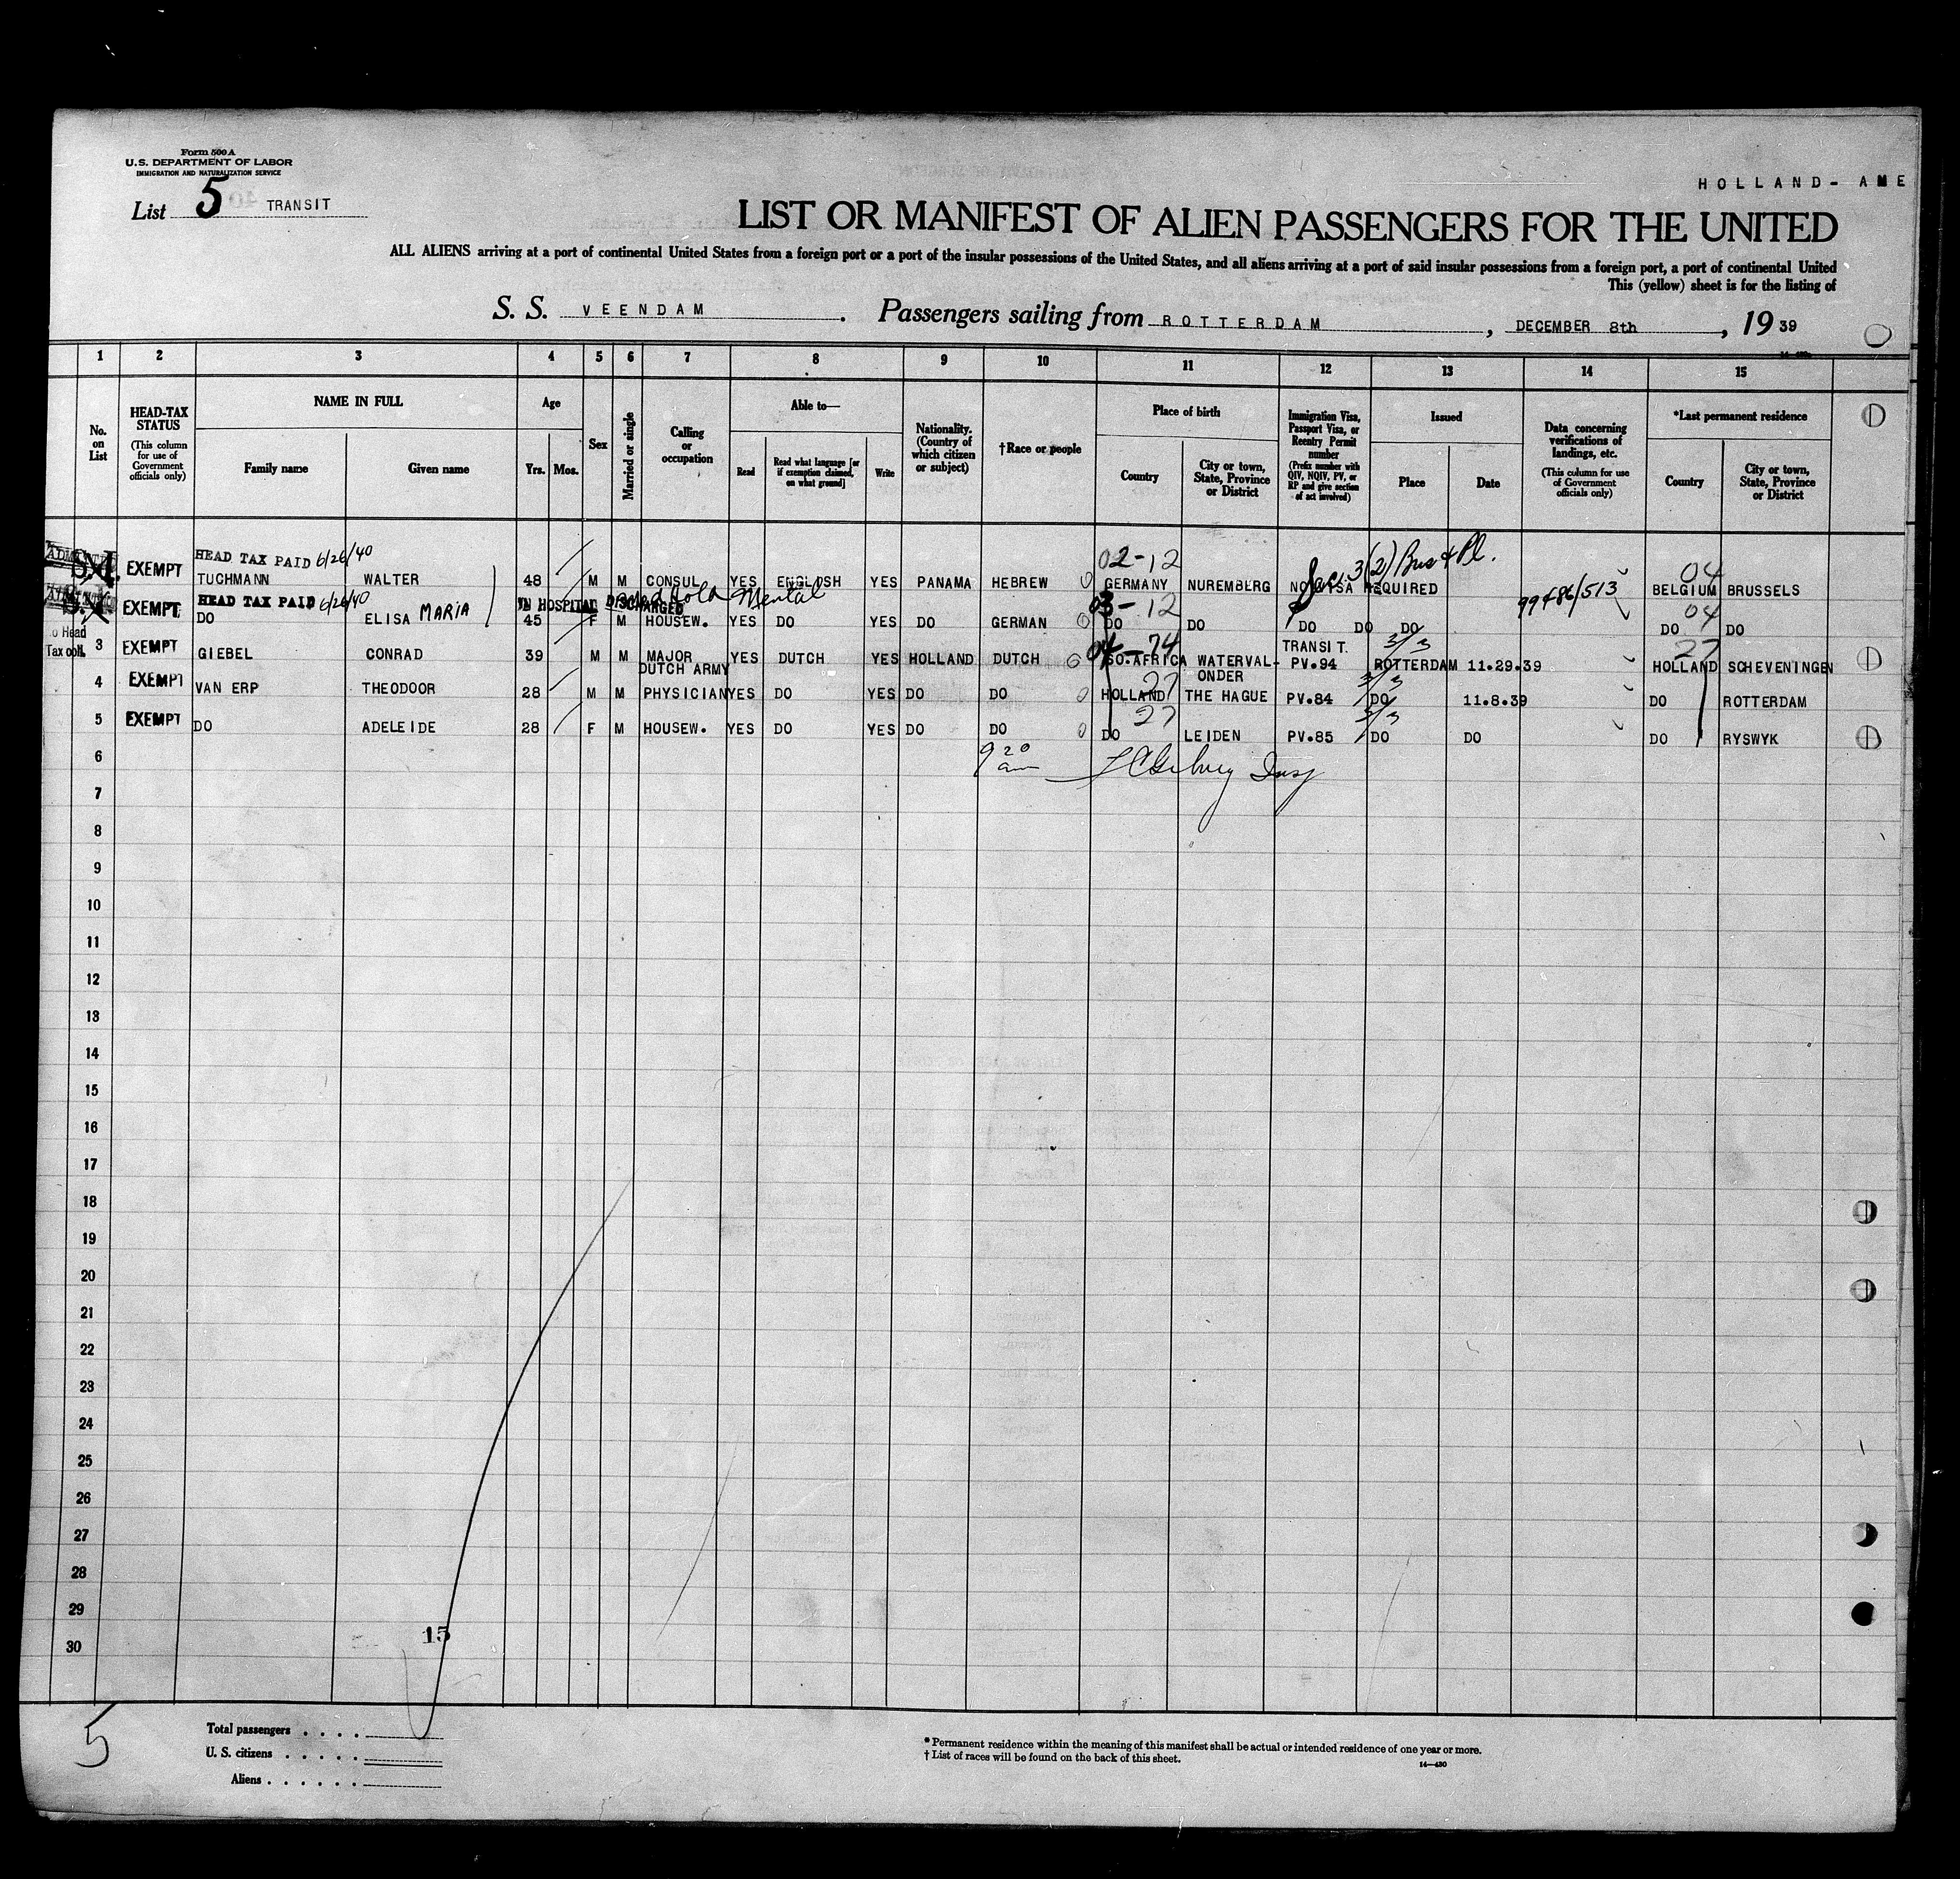 Form 500 A
U.S. DEPARTMENT OF LABOR
IMMIGRATION AND NATURALIZATION SERVICE
List 5 TRANSIT
HOLLAND- AME
LIST OR MANIFEST OF ALIEN PASSENGERS FOR THE UNITED
ALL ALIENS arriving at a port of continental United States from a foreign port or a port of the insular possessions of the United States, and all aliens arriving at a port of said insular possessions from a foreign port, a port of continental United
This (yellow) sheet is for the listing of
S. S. VEENDAM. Passengers sailing from ROTTERDAM, DECEMBER 8th, 19 39
1 2 3 4 5 6 7 8 9 10 11 12 13 14 15
No. on List
HEAD-TAX STATUS (This column for use of Government officials only)
NAME IN FULL
Family name
Given name
Age
Yrs. Mos.
Sex
Married or single
Calling or occupation
Able to—
Read
Read what language [or if exemption claimed, on what ground]
Write
Nationality. (Country of which citizen or subject)
†Race or people
Place of birth
Country
City or town, State, Province or District
Immigration Visa, Passport Visa, or Reentry Permit number (Prefix number with QIV, NQIV, PV, or RP and give section of act involved)
Issued
Place
Date
Data concerning verifications of landings, etc. (This column for use of Government officials only)
*Last permanent residence
Country
City or town, State, Province or District
HEAD TAX PAID 6/26/40 02-12 Sec. 3(2) Bus + Pl.
EXEMPT TUCHMANN WALTER 48 M M CONSUL YES ENGLISH YES PANAMA HEBREW GERMANY NUREMBERG NO VISA REQUIRED 99486/513 04 BELGIUM BRUSSELS
HEAD TAX PAID 6/26/40 IN HOSPITAL DISCHARGED Mental 03-12
EXEMPT DO ELISA MARIA 45 F M HOUSEW. YES DO YES DO GERMAN DO DO DO DO DO 04 DO DO
o Head Tax coll.
3 EXEMPT GIEBEL CONRAD 39 M M MAJOR DUTCH ARMY YES DUTCH YES HOLLAND DUTCH 04-74 SO.AFRICA WATERVAL-ONDER TRANSIT. PV.94 3/3 ROTTERDAM 11.29.39 27 HOLLAND SCHEVENINGEN
4 EXEMPT VAN ERP THEODOOR 28 M M PHYSICIAN YES DO YES DO DO 27 HOLLAND THE HAGUE PV.84 3/3 DO 11.8.39 DO ROTTERDAM
5 EXEMPT DO ADELEIDE 28 F M HOUSEW. YES DO YES DO DO 27 DO LEIDEN PV.85 3/3 DO DO DO RYSWYK
6 9 20 am
7
8
9
10
11
12
13
14
15
16
17
18
19
20
21
22
23
24
25
26
27
28
29
30
15
5
Total passengers . . . .
U. S. citizens . . . . .
Aliens . . . . . .
* Permanent residence within the meaning of this manifest shall be actual or intended residence of one year or more.
† List of races will be found on the back of this sheet.
14—430